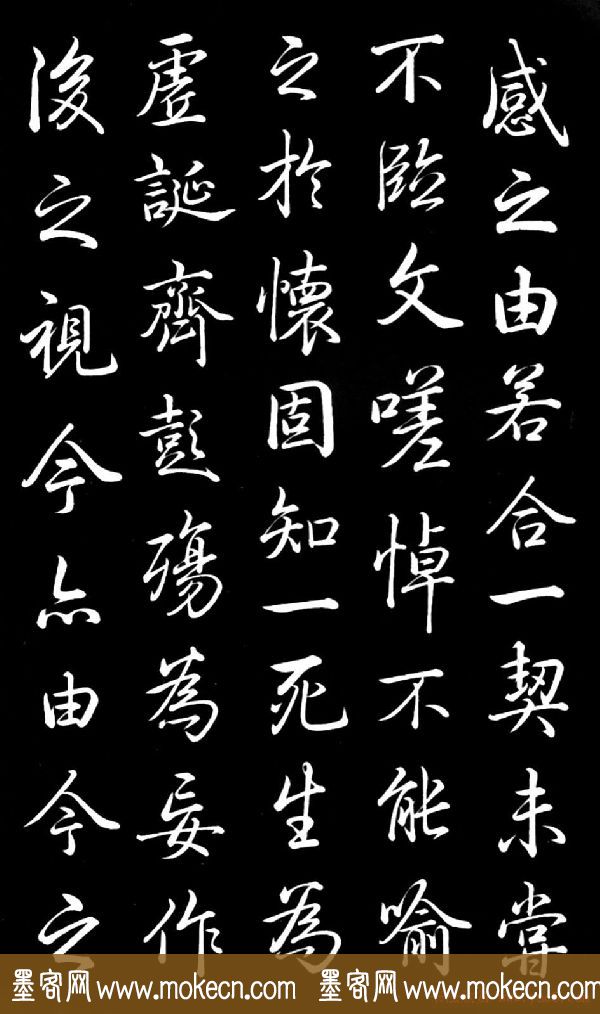 感之由若合一契未嘗
不臨文嗟悼不能喻
之於懷固知一死生為
虛誕齊彭殤為妄作
後之視今亦由今之
墨客网 www.mokecn.com 墨客网 www.mokecn.com